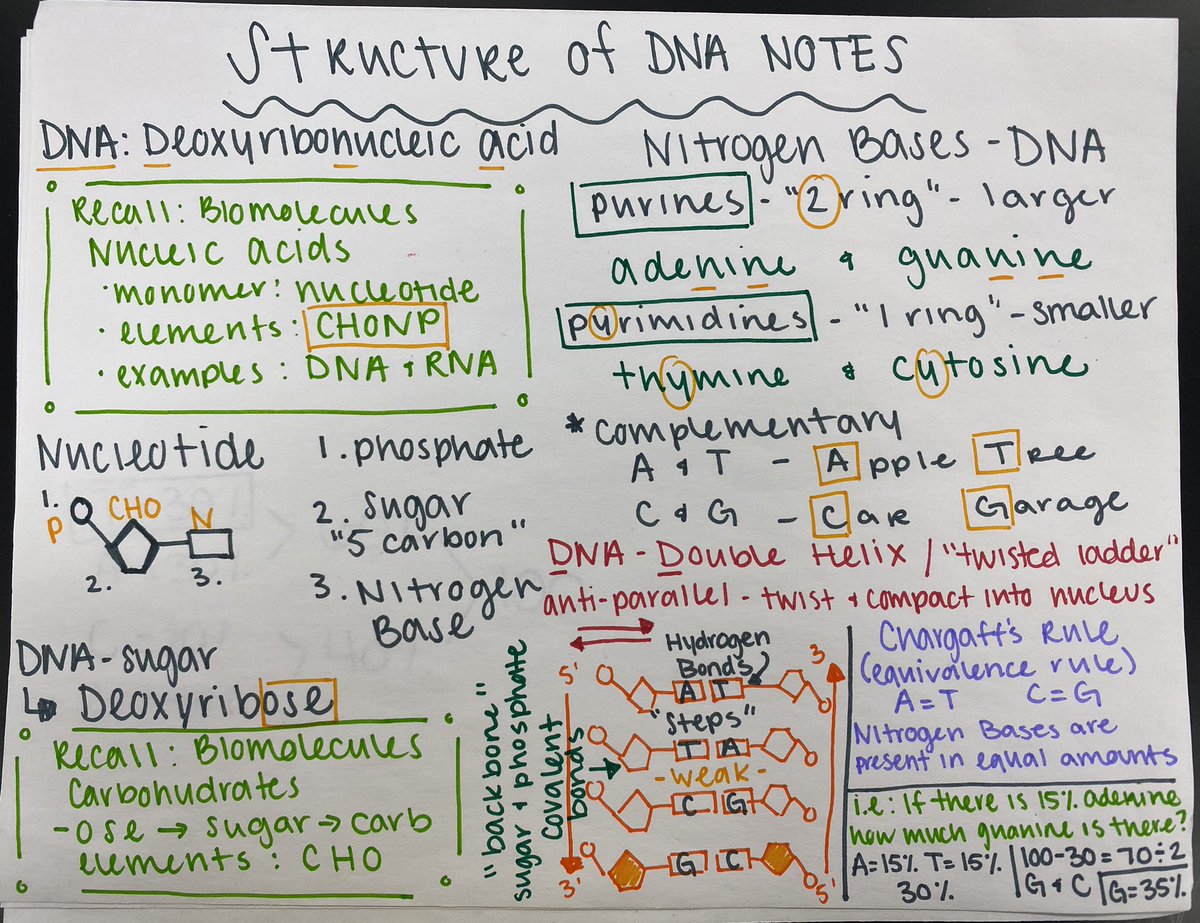 Structure of DNA Notes
DNA: Deoxyribonucleic acid
Recall: Biomolecules
Nucleic acids
· monomer: nucleotide
· elements: CHONP
· examples: DNA & RNA
Nucleotide
1. phosphate
2. sugar
"5 carbon"
3. Nitrogen
Base
1.
P
CHO
N
2.
3.
DNA - sugar
↳ Deoxyribose
Recall: Biomolecules
Carbohydrates
- ose → sugar → carb
elements: CHO
Nitrogen Bases - DNA
purines - "2 ring" - larger
adenine & guanine
pyrimidines - "1 ring" - smaller
thymine & cytosine
* complementary
A & T - Apple Tree
C & G - Car Garage
DNA - Double Helix / "twisted ladder"
anti-parallel - twist & compact into nucleus
"backbone"
sugar & phosphate
covalent
bonds
Hydrogen
Bonds
5' 3
A T
"steps"
T A
- weak -
C G
G C
3' 5'
Chargaff's Rule
(equivalence rule)
A = T C = G
Nitrogen Bases are
present in equal amounts
i.e: If there is 15% adenine
how much guanine is there?
A = 15% T = 15%
30%
100 - 30 = 70 ÷ 2
G & C G = 35%